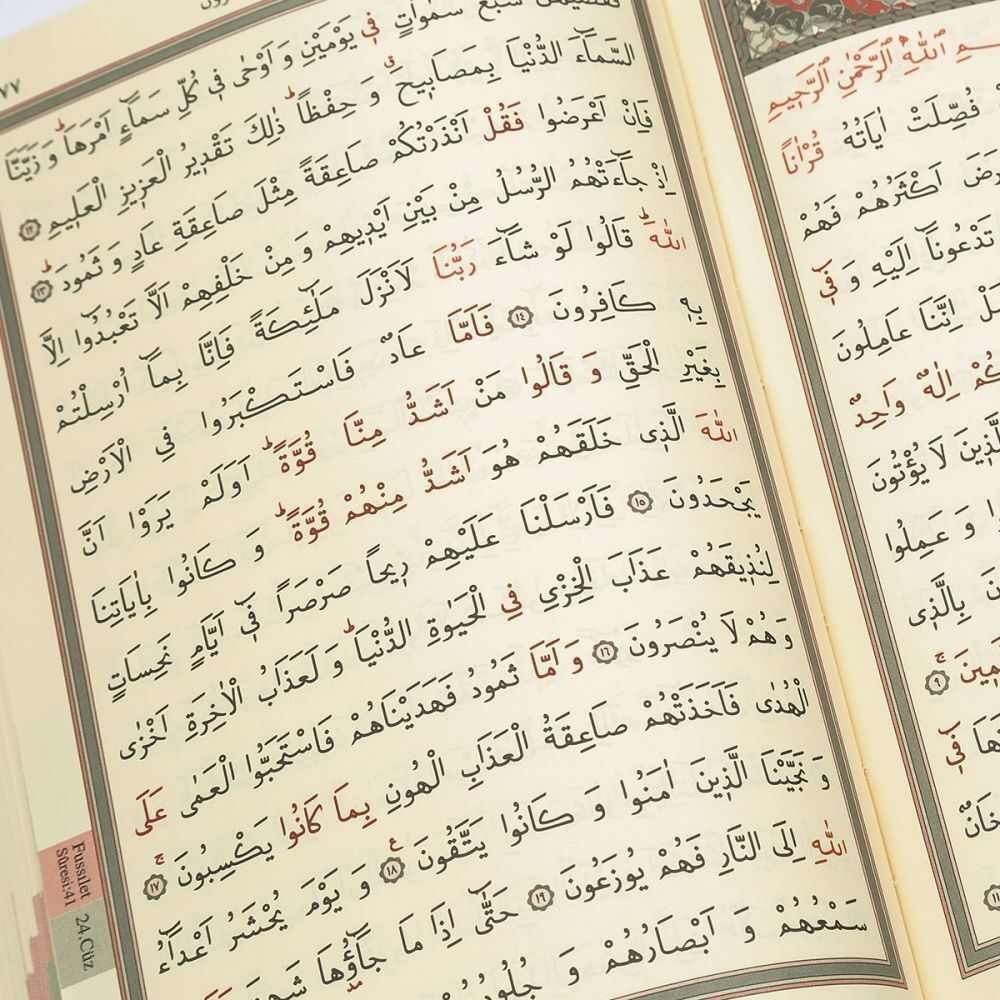 بِسْمِ اللّٰهِ الرَّحْمٰنِ الرَّحٖيمِ
فُصِّلَتْ اٰيَاتُهُ قُرْاٰناً
اَكْثَرُهُمْ فَهُمْ
تَدْعُونَٓا اِلَيْهِ وَ فٖٓي
اِنَّنَا عَامِلُونَ
اِلٰهٌ وَاحِدٌ
لَا يُؤْتُونَ
وَ عَمِلُوا
بِالَّذٖي
٩
فٖي
١١
٧٧
سَبْعَ سَمٰوَاتٍ فٖي يَوْمَيْنِ وَ اَوْحٰى فٖي كُلِّ سَمَٓاءٍ اَمْرَهَاؕ وَ زَيَّنَّا
السَّمَٓاءَ الدُّنْيَا بِمَصَابٖيحَۗ وَ حِفْظاًؕ ذٰلِكَ تَقْدٖيرُ الْعَزٖيزِ الْعَلٖيمِ ١٢
فَاِنْ اَعْرَضُوا فَقُلْ اَنْذَرْتُكُمْ صَاعِقَةً مِثْلَ صَاعِقَةِ عَادٍ وَ ثَمُودَؕ ١٣
اِذْ جَٓاءَتْهُمُ الرُّسُلُ مِنْ بَيْنِ اَيْدٖيهِمْ وَ مِنْ خَلْفِهِمْ اَلَّا تَعْبُدُٓوا اِلَّا
اللّٰهَؕ قَالُوا لَوْ شَٓاءَ رَبُّنَا لَاَنْزَلَ مَلٰٓئِكَةً فَاِنَّا بِمَٓا اُرْسِلْتُمْ
بِهٖ كَافِرُونَ ١٤ فَاَمَّا عَادٌ فَاسْتَكْبَرُوا فِي الْاَرْضِ
بِغَيْرِ الْحَقِّ وَ قَالُوا مَنْ اَشَدُّ مِنَّا قُوَّةًؕ اَوَلَمْ يَرَوْا اَنَّ
اللّٰهَ الَّذٖي خَلَقَهُمْ هُوَ اَشَدُّ مِنْهُمْ قُوَّةًؕ وَ كَانُوا بِاٰيَاتِنَا
يَجْحَدُونَ ١٥ فَاَرْسَلْنَا عَلَيْهِمْ رٖيحاً صَرْصَراً فٖٓي اَيَّامٍ نَحِسَاتٍ
لِنُذٖيقَهُمْ عَذَابَ الْخِزْيِ فِي الْحَيٰوةِ الدُّنْيَاؕ وَ لَعَذَابُ الْاٰخِرَةِ اَخْزٰى
وَهُمْ لَا يُنْصَرُونَ ١٦ وَ اَمَّا ثَمُودُ فَهَدَيْنَاهُمْ فَاسْتَحَبُّوا الْعَمٰى عَلَى
الْهُدٰى فَاَخَذَتْهُمْ صَاعِقَةُ الْعَذَابِ الْهُونِ بِمَا كَانُوا يَكْسِبُونَۚ ١٧
وَ نَجَّيْنَا الَّذٖينَ اٰمَنُوا وَ كَانُوا يَتَّقُونَ ع ١٨ وَ يَوْمَ يُحْشَرُ اَعْدَٓاءُ
اللّٰهِ اِلَى النَّارِ فَهُمْ يُوزَعُونَ ١٩ حَتّٰٓى اِذَا مَا جَٓاؤُ۫هَا
سَمْعُهُمْ وَ اَبْصَارُهُمْ وَ
Fussılet
Sûresi:41
24.Cüz